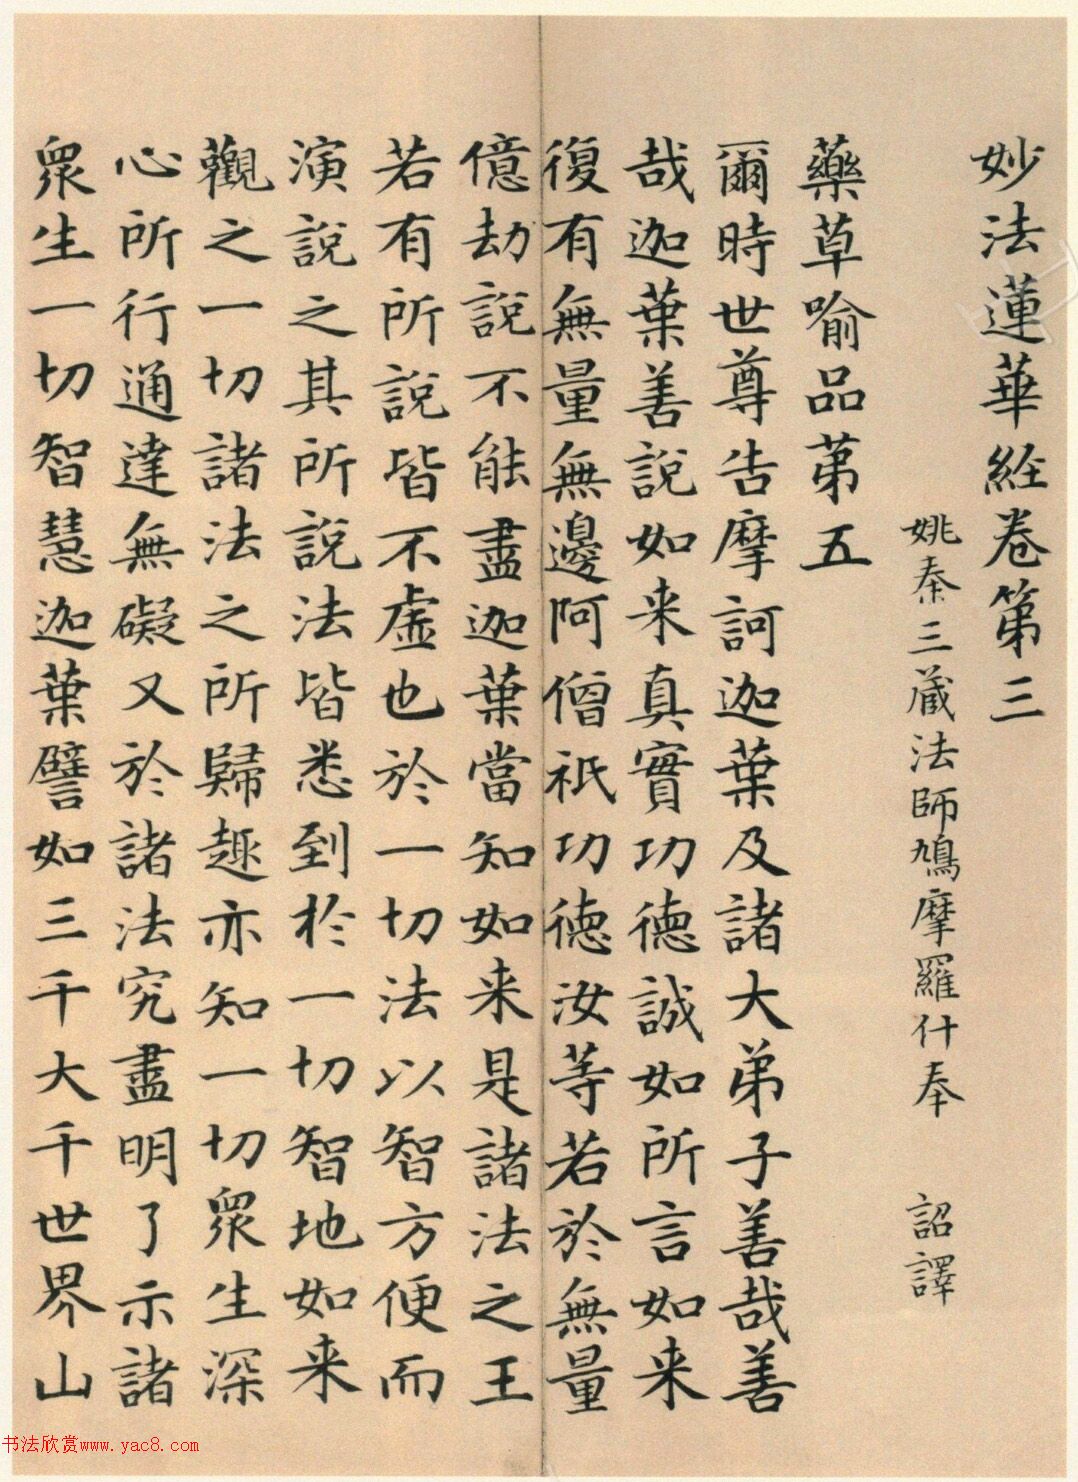 妙法蓮華經卷第三
姚秦三藏法師鳩摩羅什奉 詔譯
藥草喻品第五
爾時世尊告摩訶迦葉及諸大弟子善哉善
哉迦葉善說如来真實功德誠如所言如来
復有無量無邊阿僧祇功德汝等若於無量
億劫說不能盡迦葉當知如来是諸法之王
若有所說皆不虛也於一切法以智方便而
演說之其所說法皆悉到於一切智地如来
觀之一切諸法之所歸趣亦知一切眾生深
心所行通達無礙又於諸法究盡明了示諸
眾生一切智慧迦葉譬如三千大千世界山
书法欣赏www.yac8.com